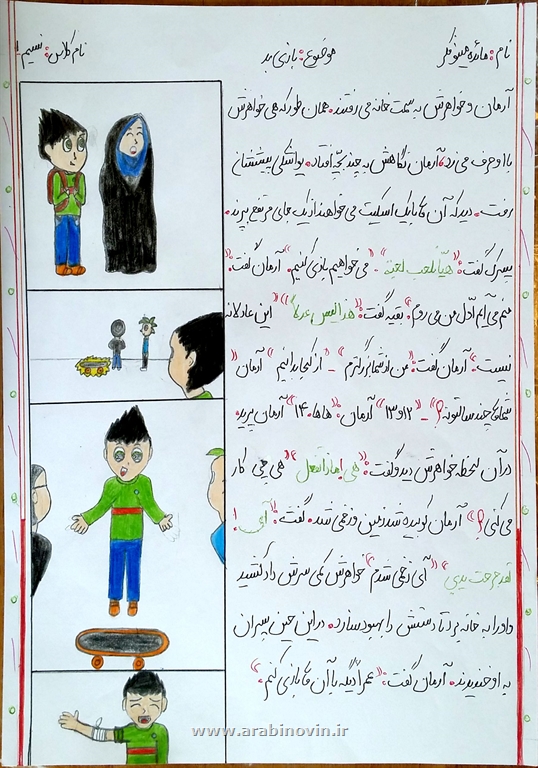 نام: مائده مینوفکر موضوع: بازی بد نام کلاس: نسیم ۱
آرمان و خواهرش به سمت خانه می رفتند. همان طور که هی خواهرش
با او حرف می زد، آرمان نگاهش به چند بچه افتاد. یواشکی پیششان
رفت. دید که آن ها با یک اسکیت می خواهند از یک جای مرتفع بپرند.
پسرک گفت: «هیّا نلعب لعبة» - «می خواهیم بازی کنیم.» آرمان گفت: «
منم می آیم اوّل من می روم» بقیه گفت: «هذا لیس عدلاً» «این عادلانه
نیست» آرمان گفت: «من از شما بزرگترم» - «از کجا بدانیم» آرمان «
شما ها چند سالتونه؟» - «۱۲ و ۱۳» آرمان: «ها ها، ۱۴» آرمان پرید.
در آن لحظه خواهرش دید و گفت: «هی! ماذا تفعل» «هی چی کار
می کنی؟» آرمان کوبیده شد زمین و زخمی شد. گفت: «آی!
لقد جرحت یدي» «آی زخمی شدم» خواهرش کمی سرش داد کشید
و او را به خانه برد تا دستش را بهبود سازد. در این حین پسران
به او خندیدند. آرمان گفت: «عمراً دیگه با آن ها بازی کنم.»
www.arabinovin.ir